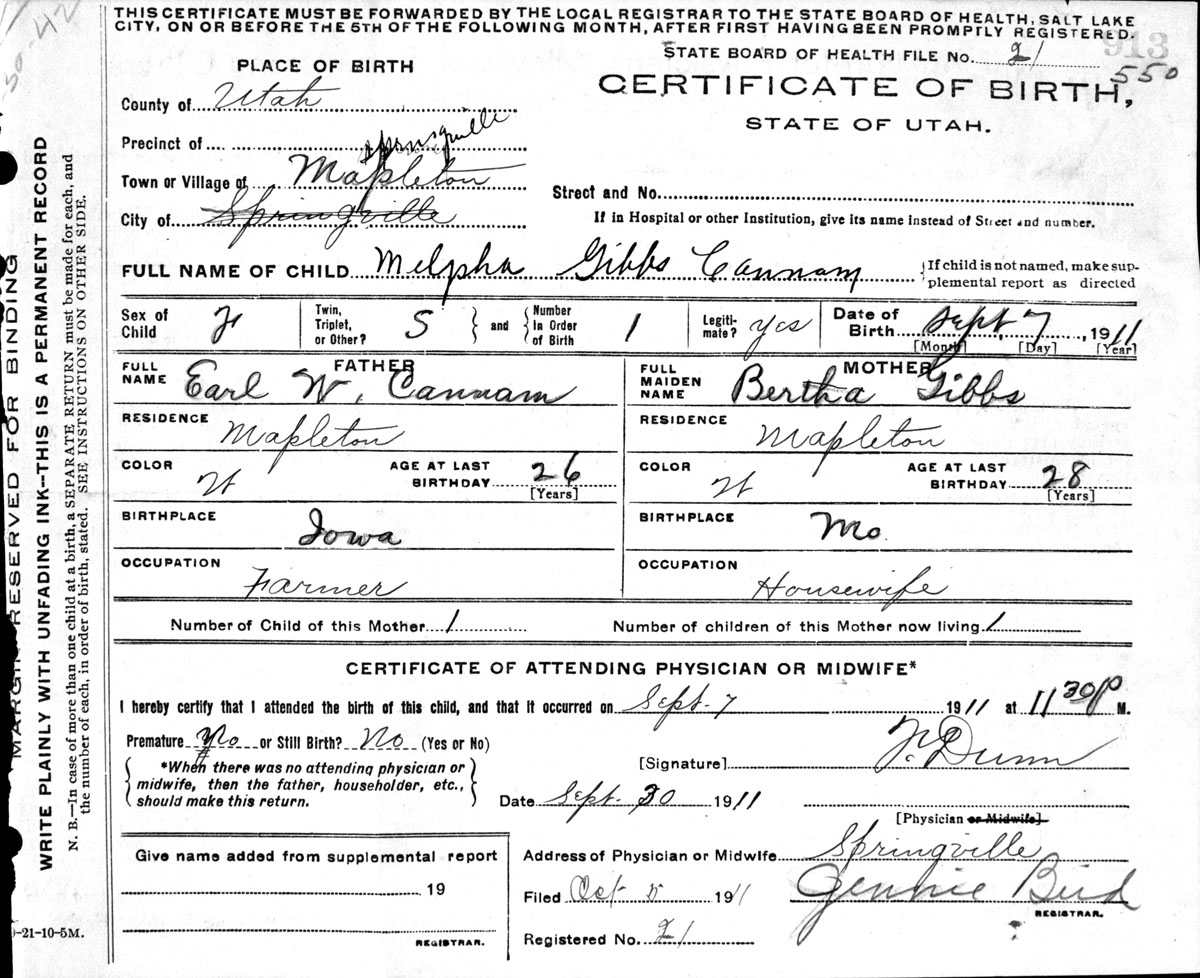 THIS CERTIFICATE MUST BE FORWARDED BY THE LOCAL REGISTRAR TO THE STATE BOARD OF HEALTH, SALT LAKE
CITY, ON OR BEFORE THE 5TH OF THE FOLLOWING MONTH, AFTER FIRST HAVING BEEN PROMPTLY REGISTERED.
913
STATE BOARD OF HEALTH FILE No. 21
550
PLACE OF BIRTH
CERTIFICATE OF BIRTH,
STATE OF UTAH.
County of Utah
Precinct of Springville
Town or Village of Mapleton
Street and No.
City of Springville
If in Hospital or other Institution, give its name instead of Street and number.
FULL NAME OF CHILD Melpha Gibbs Cannam
{If child is not named, make sup-
plemental report as directed
Sex of Child F
Twin, Triplet, or Other? S } and { Number In Order of Birth 1
Legiti-mate? Yes
Date of Birth Sept. 7, 1911
[Month] [Day] [Year]
FATHER
FULL NAME Earl W. Cannam
MOTHER
FULL MAIDEN NAME Bertha Gibbs
RESIDENCE Mapleton
RESIDENCE Mapleton
COLOR W AGE AT LAST BIRTHDAY 26 [Years]
COLOR W AGE AT LAST BIRTHDAY 28 [Years]
BIRTHPLACE Iowa
BIRTHPLACE Mo.
OCCUPATION Farmer
OCCUPATION Housewife
Number of Child of this Mother 1
Number of children of this Mother now living 1
CERTIFICATE OF ATTENDING PHYSICIAN OR MIDWIFE*
I hereby certify that I attended the birth of this child, and that it occurred on Sept. 7 1911 at 11 30 P M.
Premature No or Still Birth? No (Yes or No)
[Signature] Dunn
{ *When there was no attending physician or
midwife, then the father, householder, etc.,
should make this return. }
Date Sept. 30 1911
[Physician or Midwife]
Give name added from supplemental report
19
REGISTRAR.
Address of Physician or Midwife Springville
Filed Oct 5 1911 Jennie Bird
REGISTRAR.
Registered No. 21
-21-10-5M.
MARGIN RESERVED FOR BINDING
WRITE PLAINLY WITH UNFADING INK—THIS IS A PERMANENT RECORD
N. B.—In case of more than one child at a birth, a SEPARATE RETURN must be made for each, and
the number of each, in order of birth, stated. SEE INSTRUCTIONS ON OTHER SIDE.